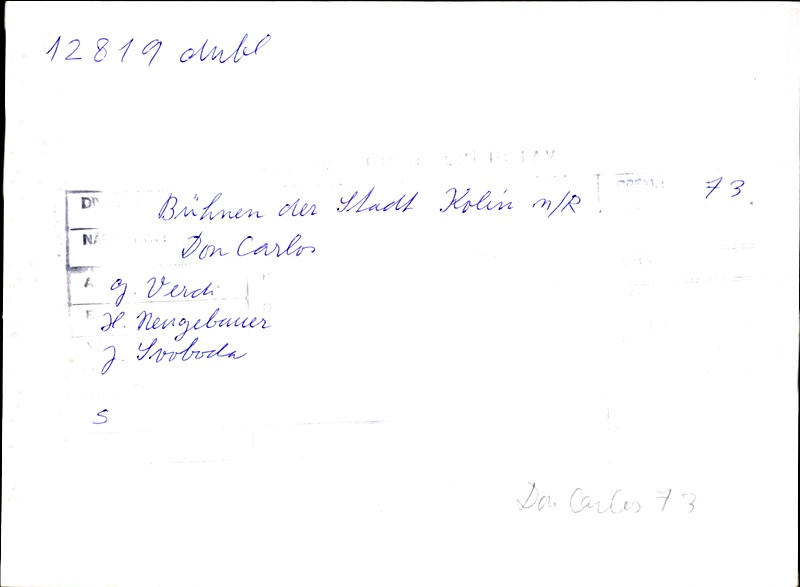 12819 dubl
Bühnen der Stadt Kolín n/R 73.
Don Carlos
G. Verdi
H. Neugebauer
J. Svoboda
S
Don Carlos 73